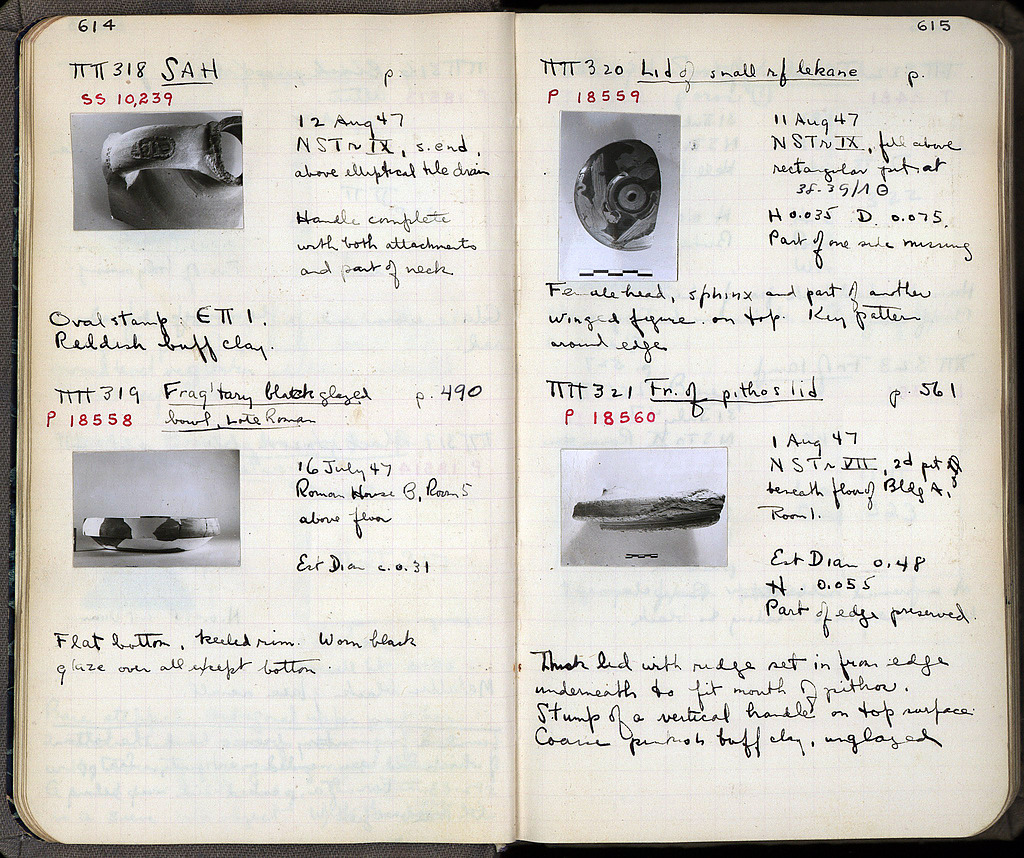 614
ΠΠ 318 SAH p.
SS 10,239
12 Aug 47
N S Tr IX, s. end,
above elliptical tile drain
Handle complete
with both attachments
and part of neck
Oval stamp EΠ I.
Reddish buff clay.
ΠΠ 319 Frag'tary black glazed p. 490
P 18558 bowl, Late Roman
16 July 47
Roman House B, Room 5
above floor
Est Diam c. 0.31
Flat bottom, keeled rim. Worn black
glaze over all except bottom.
615
ΠΠ 320 Lid of small rf lekane p.
P 18559
11 Aug 47
N S Tr IX, fill above
rectangular pit at
38-39/ΛΘ
H 0.035 D. 0.075.
Part of one side missing
Female head, sphinx and part of another
winged figure on top. Key pattern
around edge
ΠΠ 321 Fr. of pithos lid p. 561
P 18560
1 Aug 47
N S Tr VII, 2d pit
beneath floor of Bldg A,
Room 1.
Est Diam 0.48
H. 0.055
Part of edge preserved.
Thick lid with ridge set in from edge
underneath to fit mouth of pithos.
Stump of a vertical handle on top surface.
Coarse pinkish buff clay, unglazed